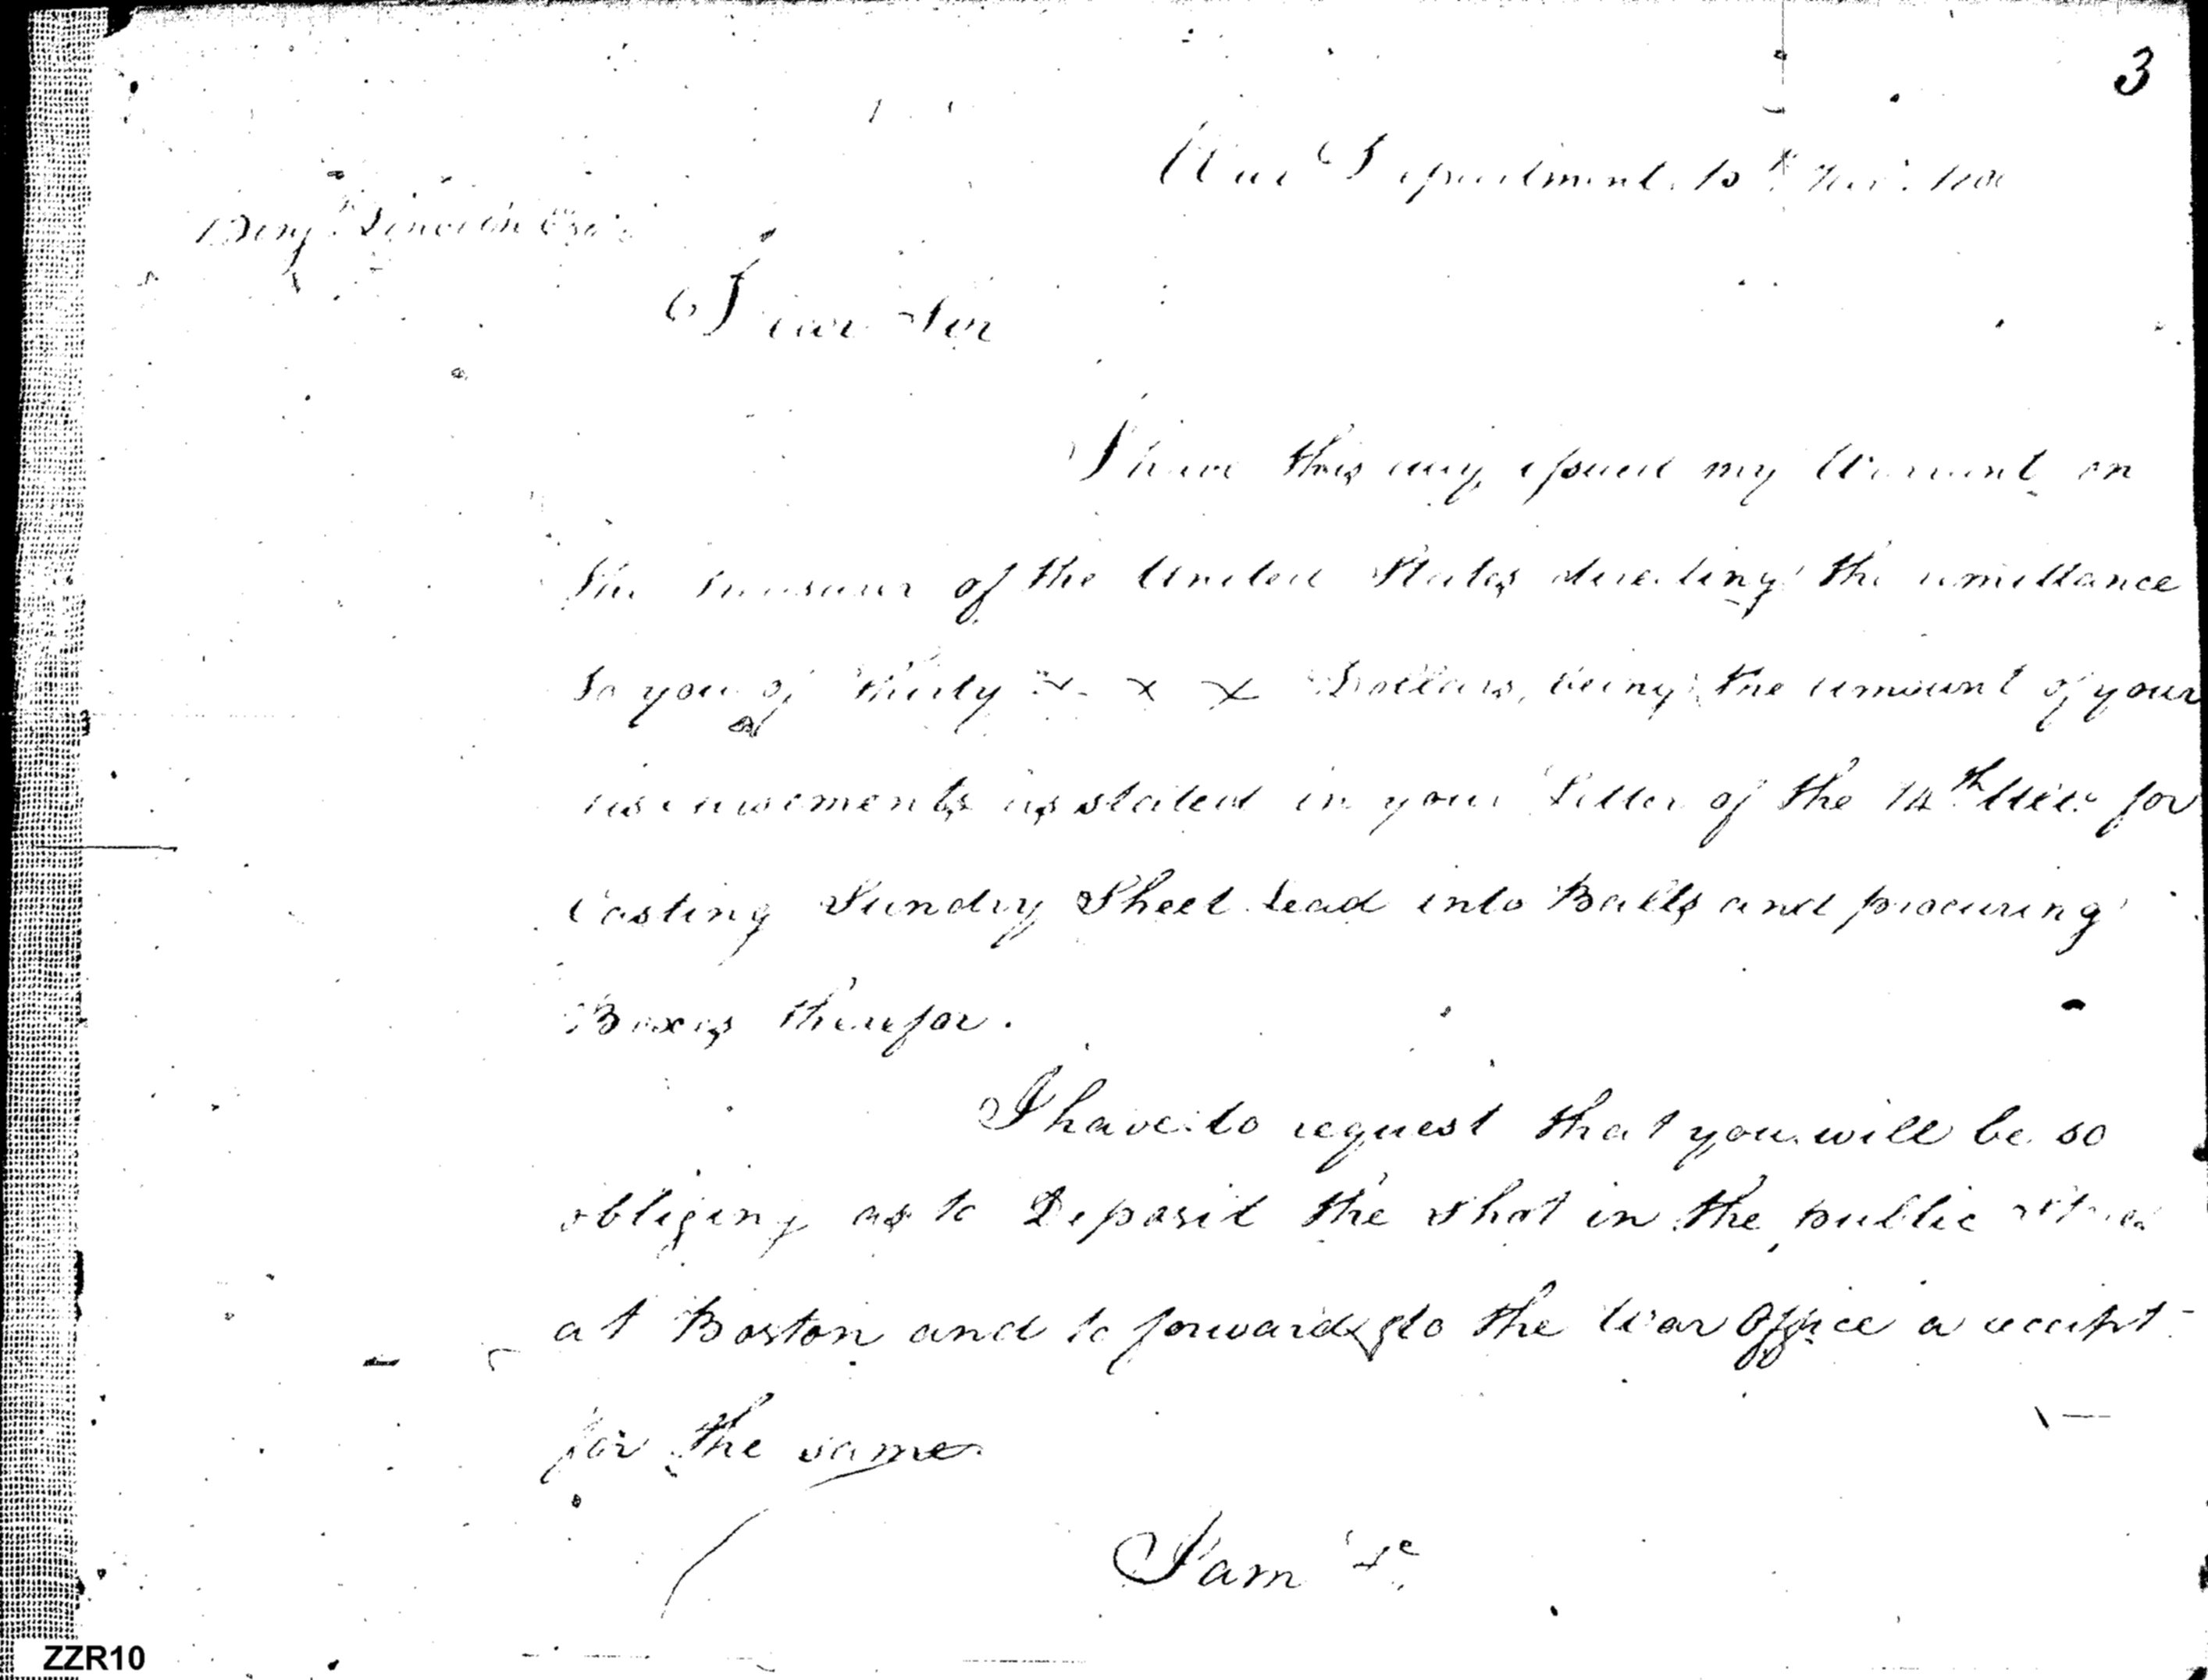 3
War Department 10th Nov.
Benj. Lincoln Esqr.
Dear Sir
I have this day issued my Warrant on
the Treasurer of the United States directing the remittance
to you of Thirty x x x Dollars, being the amount of your
disbursements as stated in your Letter of the 14th Ulto. for
Casting Sundry Sheet Lead into Balls and procuring
Boxes therefor.
I have to request that you will be so
obliging as to Deposit the shot in the public stores
at Boston and to forward to the War Office a receipt
for the same
I am &c
ZZR10